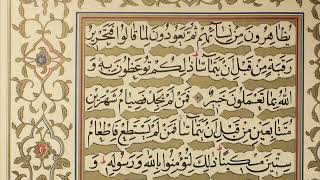 يُظَاهِرُونَ مِنْ نِسَائِهِمْ ثُمَّ يَعُودُونَ لِمَا قَالُوا فَتَحْرِيرُ
رَقَبَةٍ مِنْ قَبْلِ أَنْ يَتَمَاسَّا ذَلِكُمْ تُوعَظُونَ بِهِ وَ
اللَّهُ بِمَا تَعْمَلُونَ خَبِيرٌ فَمَنْ لَمْ يَجِدْ فَصِيَامُ شَهْرَيْنِ
مُتَتَابِعَيْنِ مِنْ قَبْلِ أَنْ يَتَمَاسَّا فَمَنْ لَمْ يَسْتَطِعْ فَإِطْعَامُ
سِتِّينَ مِسْكِينًا ذَلِكَ لِتُؤْمِنُوا بِاللَّهِ وَرَسُولِهِ وَ